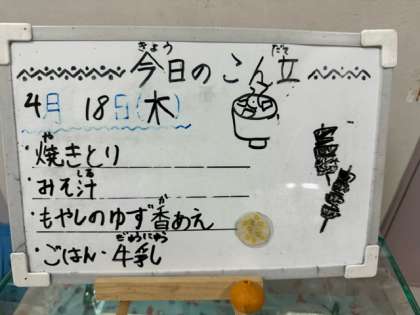 今日のこん立
4月 18日(木)
・焼きとり
・みそ汁
・もやしのゆず香あえ
・ごはん・牛乳